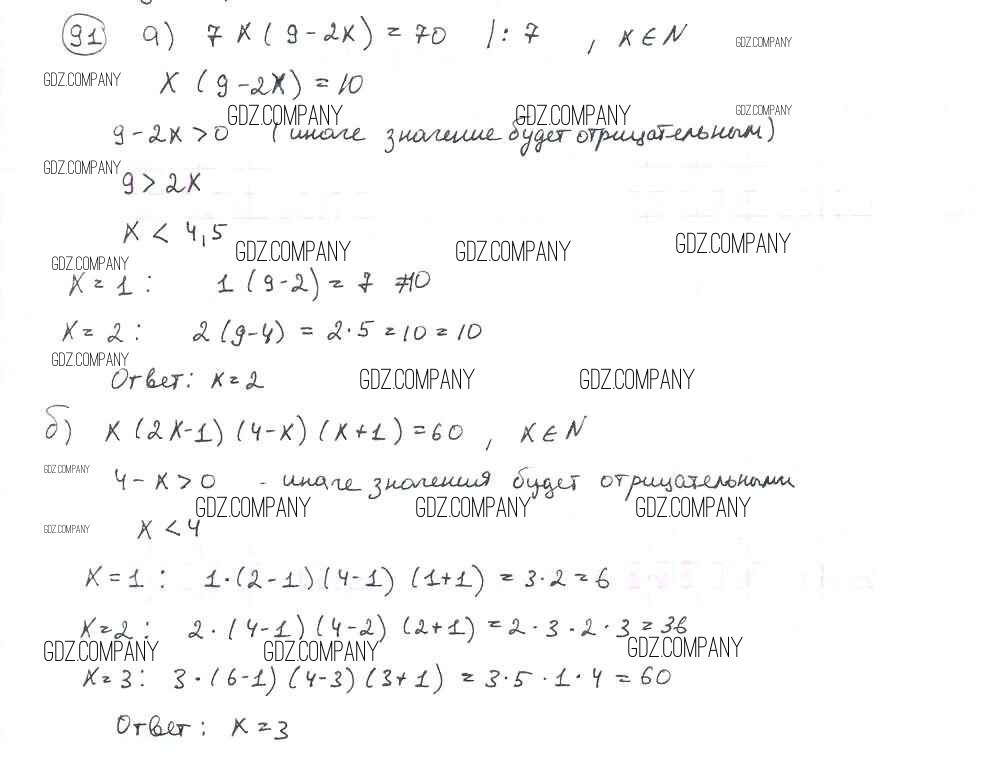 91 а) 7x(9-2x) = 70 |: 7 , x∈N GDZ.COMPANY
GDZ.COMPANY x(9-2x) = 10
GDZ.COMPANY GDZ.COMPANY GDZ.COMPANY
9-2x>0 (иначе значение будет отрицательным)
GDZ.COMPANY
9>2x
x < 4,5
GDZ.COMPANY GDZ.COMPANY GDZ.COMPANY
GDZ.COMPANY
x=1: 1(9-2)=7 ≠10
x=2: 2(9-4) = 2·5=10=10
GDZ.COMPANY
Ответ: x=2 GDZ.COMPANY GDZ.COMPANY
б) x(2x-1)(4-x)(x+1)=60, x∈N
GDZ.COMPANY 4-x>0 - иначе значения будет отрицательными
GDZ.COMPANY GDZ.COMPANY GDZ.COMPANY
GDZ.COMPANY x<4
x=1: 1·(2-1)(4-1)(1+1) = 3·2=6
x=2: 2·(4-1)(4-2)(2+1)=2·3·2·3=36
GDZ.COMPANY GDZ.COMPANY GDZ.COMPANY
x=3: 3·(6-1)(4-3)(3+1) = 3·5·1·4=60
Ответ: x=3